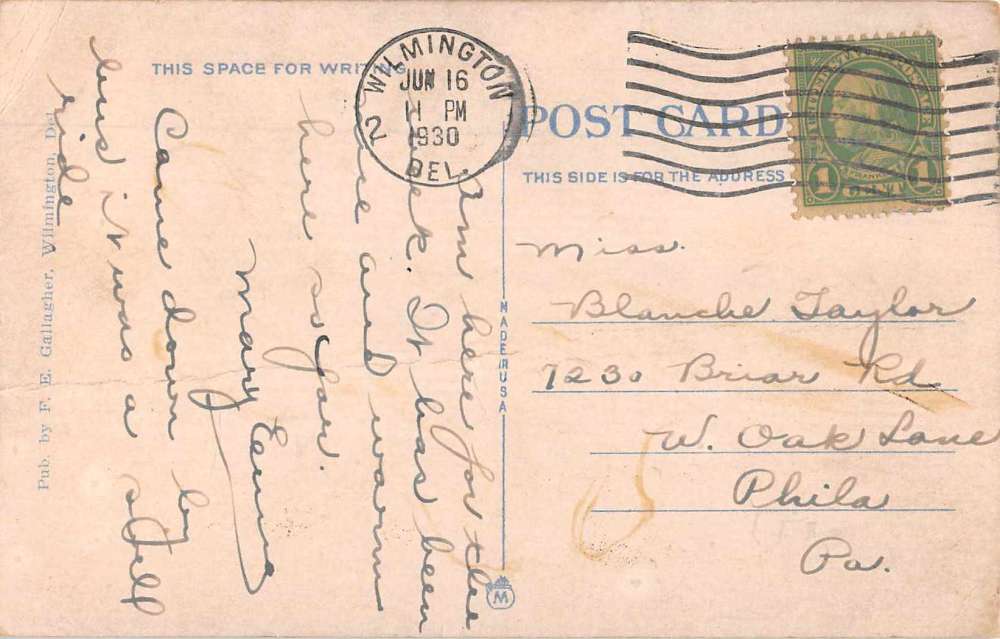 THIS SPACE FOR WRITING
WILMINGTON
JUN 16
11 PM
1930
DEL.
2
POST CARD
THIS SIDE IS FOR THE ADDRESS
FRANKLIN
1 1
Am here for the
week. It has been
nice and warm
here so far.
Mary Erma
Came down by
bus it was a
ride
Miss.
Blanche Taylor
7230 Briar Rd
W. Oak Lane
Phila
Pa.
MADE IN USA
M
Pub. by F. E. Gallagher, Wilmington, Del.